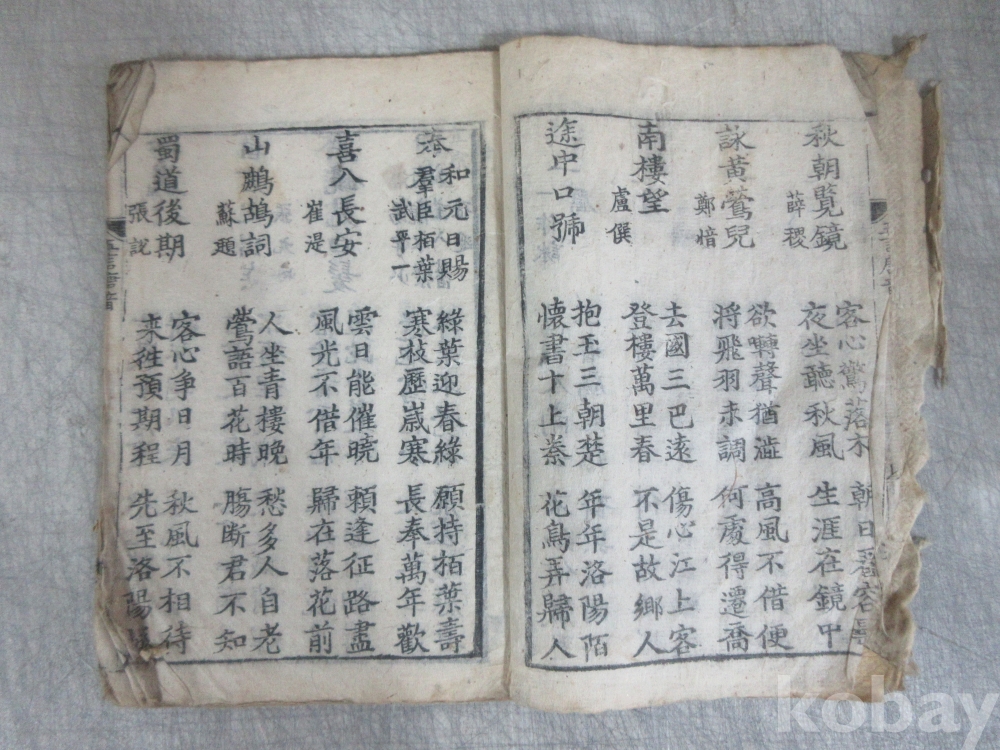 秋朝覧鏡
薛稷
客心驚落木 朝日看容
夜坐聽秋風 生涯在鏡中
詠黃鶯兒
鄭愔
欲囀聲猶澁 高風不借便
將飛羽未調 何處得遷喬
南樓望
盧僎
去國三巴遠 傷心江上客
登樓萬里春 不是故鄉人
途中口號
抱玉三朝楚 年年洛陽陌
懷書十上秦 花鳥弄歸人
奉
和元日賜
羣臣栢葉
武平一
綠葉迎春綠 願持栢葉壽
寒枝歷歲寒 長奉萬年歡
喜入長安
崔湜
雲日能催曉 賴逢征路盡
風光不借年 歸在落花前
山鷓鴣詞
蘇題
人坐青樓晚 愁多人自老
鶯語百花時 膓斷君不知
蜀道後期
張說
客心争日月 秋風不相待
来往預期程 先至洛陽城
五言唐音
kobay